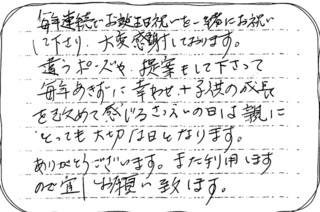 毎年連続でお誕生日祝いを一緒にお祝い
して下さり、大変感謝しております。
違うポーズや、提案もして下さって
毎年あきずに幸せ+子供の成長
を改めて感じるさつえいの日は親に
とっても大切な日となります。
ありがとうございます。また利用します
ので宜しくお願い致します。